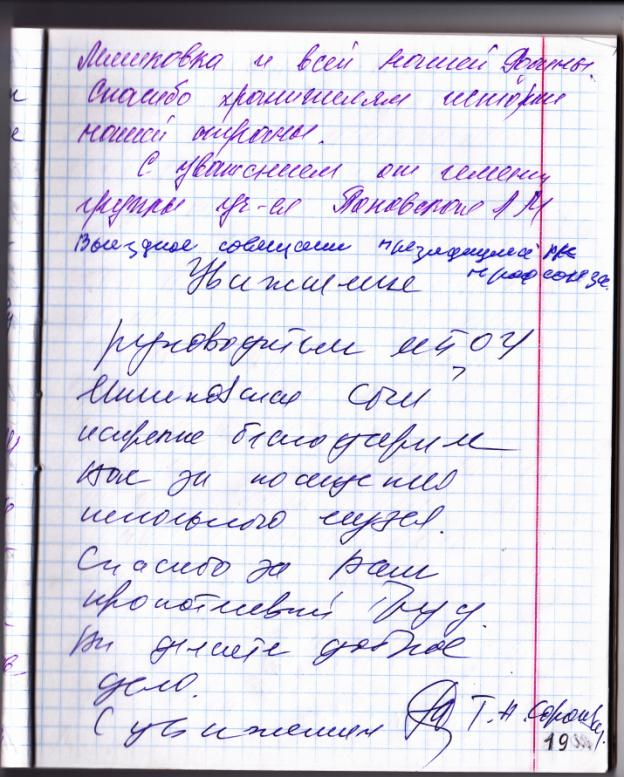 Мишковка и всей нашей Донны.
Спасибо хранителям истории
нашей страны.
С уважением от имени
группы уч-ся Пановская Л М
Выездное совещание президиума
профсоюза.
Уважаемые
руководители
Мишковская СОШ
искренне благодарим
Вас за посещение
школьного музея.
Спасибо за Ваш
кропотливый труд.
Вы делаете доброе
дело.
С уважением Т. Н.
19